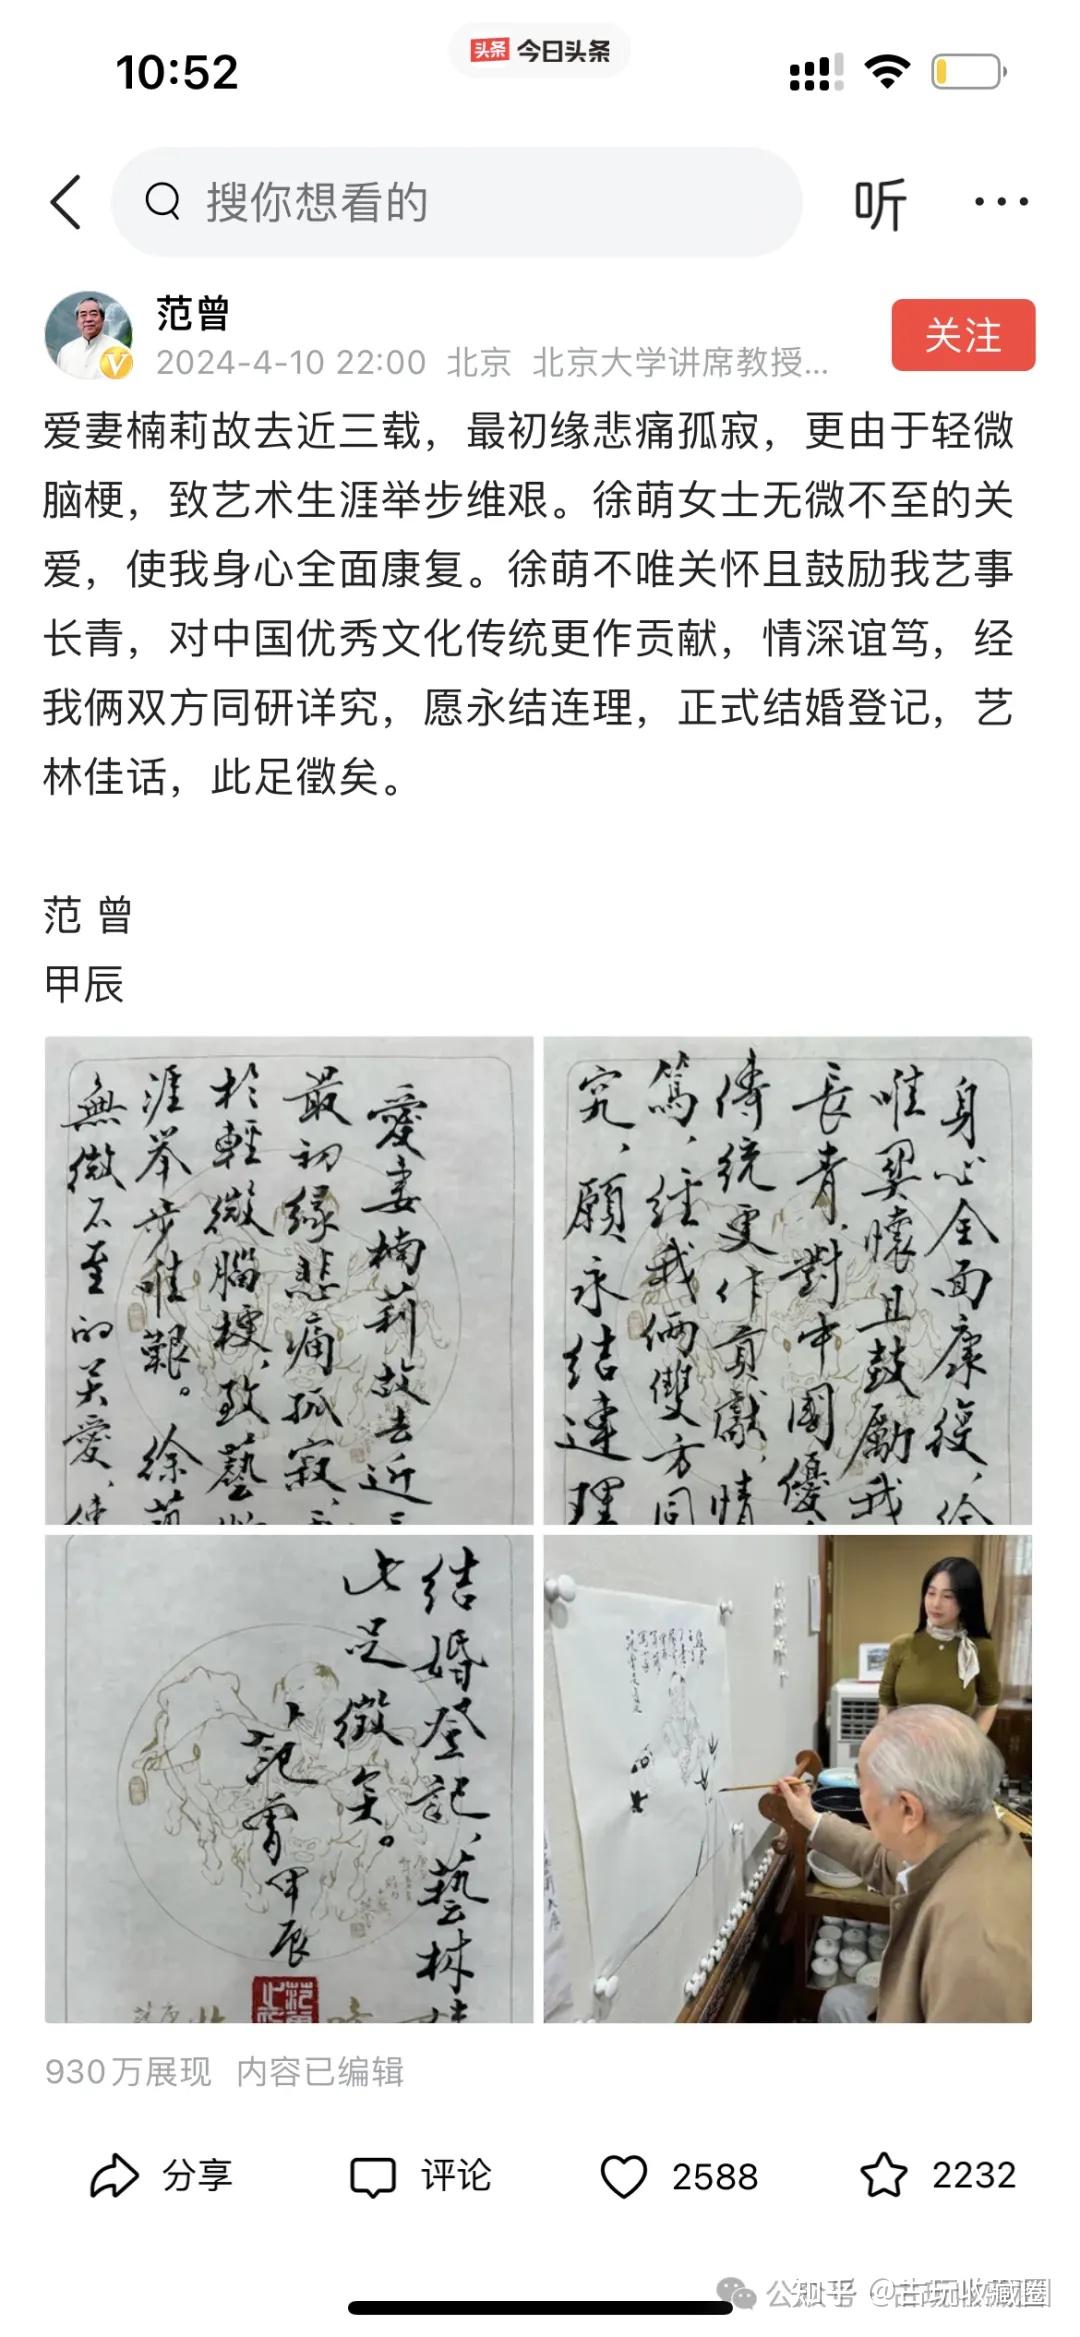 10:52
头条 今日头条
搜你想看的
听
范曾
2024-4-10 22:00 北京 北京大学讲席教授...
关注
爱妻楠莉故去近三载，最初缘悲痛孤寂，更由于轻微
脑梗，致艺术生涯举步维艰。徐萌女士无微不至的关
爱，使我身心全面康复。徐萌不唯关怀且鼓励我艺事
长青，对中国优秀文化传统更作贡献，情深谊笃，经
我俩双方同研详究，愿永结连理，正式结婚登记，艺
林佳话，此足徵矣。
范 曾
甲辰
愛妻楠莉故去近三
最初缘悲痛孤寂，
於輕微腦梗，致藝
涯举步唯艱。徐萌
無微不至的关愛，使
身心全面康復，徐
唯関懷且鼓勵我
長青，對中國優
傳统更作貢獻，情
篤，经我俩雙方同
究，願永结連理
结婚登記，藝林佳
此足徵矣。
范曾甲辰
930万展现 内容已编辑
分享
评论
2588
2232
公众号
知乎 @古玩收藏圈